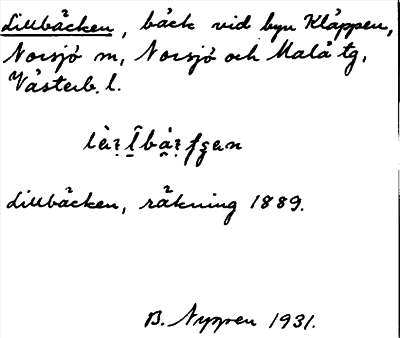 Lillbäcken, bäck vid byn Kläppen,
Norsjö sn, Norsjö och Malå tg,
Västerb. l.
Lillbäcken, räkning 1889.
B. Nyppen 1931.